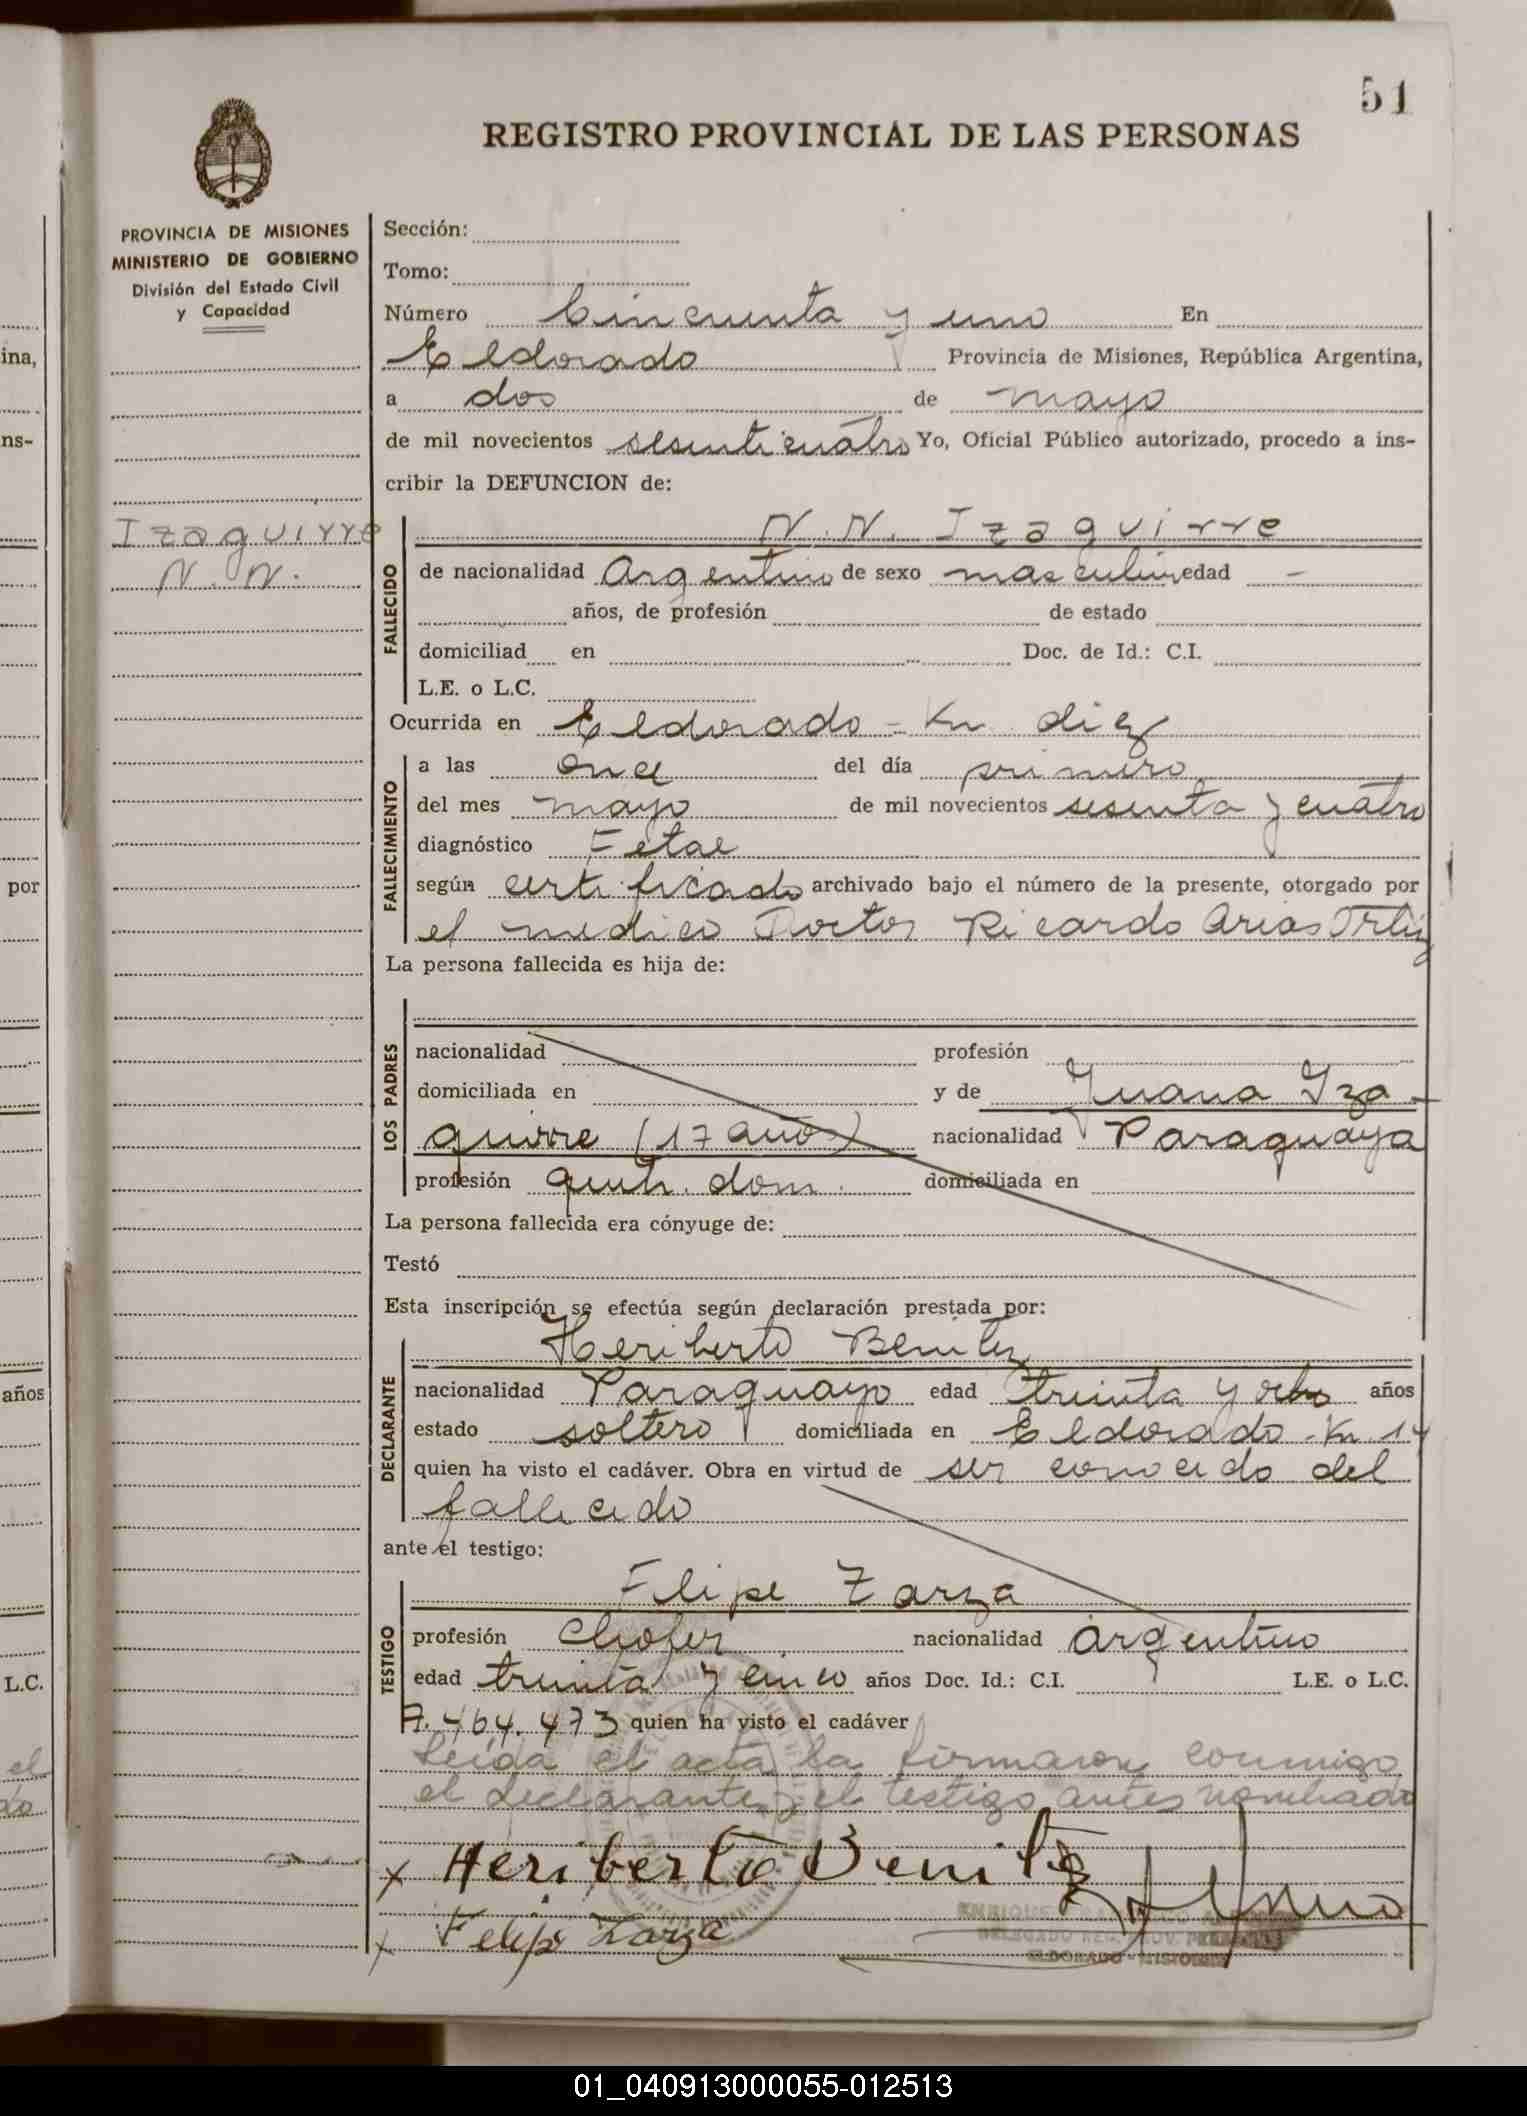 51
REGISTRO PROVINCIAL DE LAS PERSONAS
PROVINCIA DE MISIONES
MINISTERIO DE GOBIERNO
División del Estado Civil
y Capacidad
Izaguirre
N. N.
Sección:
Tomo:
Número Cincuenta y uno En
Eldorado Provincia de Misiones, República Argentina,
a dos de mayo
de mil novecientos sesenticuatro Yo, Oficial Público autorizado, procedo a ins-
cribir la DEFUNCION de:
FALLECIDO
N. N. Izaguirre
de nacionalidad Argentino de sexo masculino edad -
años, de profesión de estado
domiciliad en Doc. de Id.: C.I.
L.E. o L.C.
Ocurrida en Eldorado - Km diez
FALLECIMIENTO
a las once del día primero
del mes mayo de mil novecientos sesenta y cuatro
diagnóstico Fetal
según certificado archivado bajo el número de la presente, otorgado por
el medico Doctor Ricardo Arias Ortiz
La persona fallecida es hija de:
LOS PADRES
nacionalidad profesión
domiciliada en y de Juana Iza-
guirre (17 años) nacionalidad Paraguaya
profesión dom. domiciliada en
La persona fallecida era cónyuge de:
Testó
Esta inscripción se efectúa según declaración prestada por:
DECLARANTE
Heriberto Benitez
nacionalidad Paraguayo edad treinta y ocho años
estado soltero domiciliada en Eldorado - Km 14
quien ha visto el cadáver. Obra en virtud de ser conocido del
fallecido
ante el testigo:
TESTIGO
Felipe Zarza
profesión Chofer nacionalidad argentino
edad treinta y cinco años Doc. Id.: C.I. L.E. o L.C.
7.464.473 quien ha visto el cadáver
Leída el acta la firmaron conmigo
el declarante y el testigo antes nombrado
x Heriberto Benitez
x Felipe Zarza
ENRIQUE
DELEGADO REG. PROV. PERSONAS
ELDORADO - MISIONES
ina,
ns-
por
años
L.C.
el
do
01_040913000055-012513